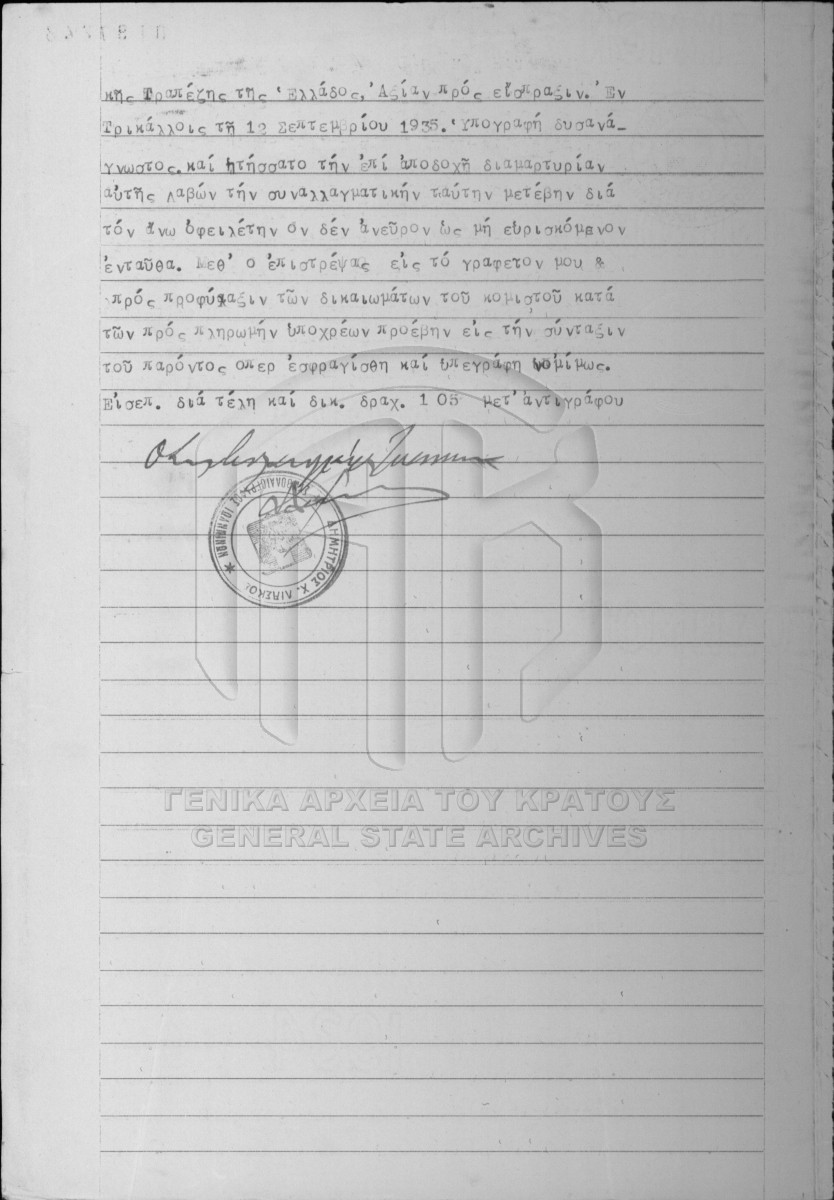 κῆς Τραπέζης τῆς ‘Ελλάδος, ’Αξίαν πρός εἴσπραξιν. ’Εν
Τρικάλλοις τῇ 12 Σεπτεμβρίου 1935. ‘Υπογραφή δυσανά-
γνωστος. καί ἠτήσσατο τήν ἐπί ἀποδοχῇ διαμαρτυρίαν
αὐτῆς λαβών τήν συναλλαγματικήν ταύτην μετέβην διά
τόν ἄνω ὀφειλέτην ον δέν ἀνεῦρον ὡς μή εὑρισκόμενον
ἐνταῦθα. Μεθ’ ο ἐπιστρέψας εἰς τό γραφετον μου &
πρός προφύλαξιν τῶν δικαιωμάτων τοῦ κομιστοῦ κατά
τῶν πρός πληρωμήν ὑποχρέων προέβην εἰς τήν σύνταξιν
τοῦ παρόντος οπερ ἐσφραγίσθη καί ὑπεγράφη νομίμως.
Εἰσεπ. διά τέλη καί δικ. δραχ. 105 μετ’ ἀντιγράφου
ΔΗΜΗΤΡΙΟΣ Χ. ΛΙΜΕΚΟΣ
ΣΥΜΒΟΛΑΙΟΓΡΑΦΟΣ ΙΩΑΝΝΙΝΩΝ
ΓΕΝΙΚΑ ΑΡΧΕΙΑ ΤΟΥ ΚΡΑΤΟΥΣ
GENERAL STATE ARCHIVES